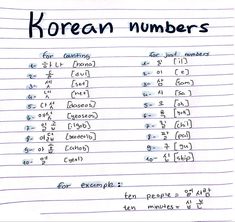 Korean numbers
for counting for just numbers
1- 하나 [hana] 1- 일 [il]
2- 둘 [dul] 2- 이 [e]
3- 셋 [set] 3- 삼 [sam]
4- 넷 [net] 4- 사 [sa]
5- 다섯 [daseos] 5- 오 [oh]
6- 여섯 [yeoseos] 6- 육
7- 일곱 [ilgob] 7- 칠 [chil]
8- 여덟 8- 팔 [pal]
9- 아홉 9- 구 [gu]
10- 열 [yeol] 10- 십 [ship]
for example:
ten people = 열 사람
ten minutes = 십 분